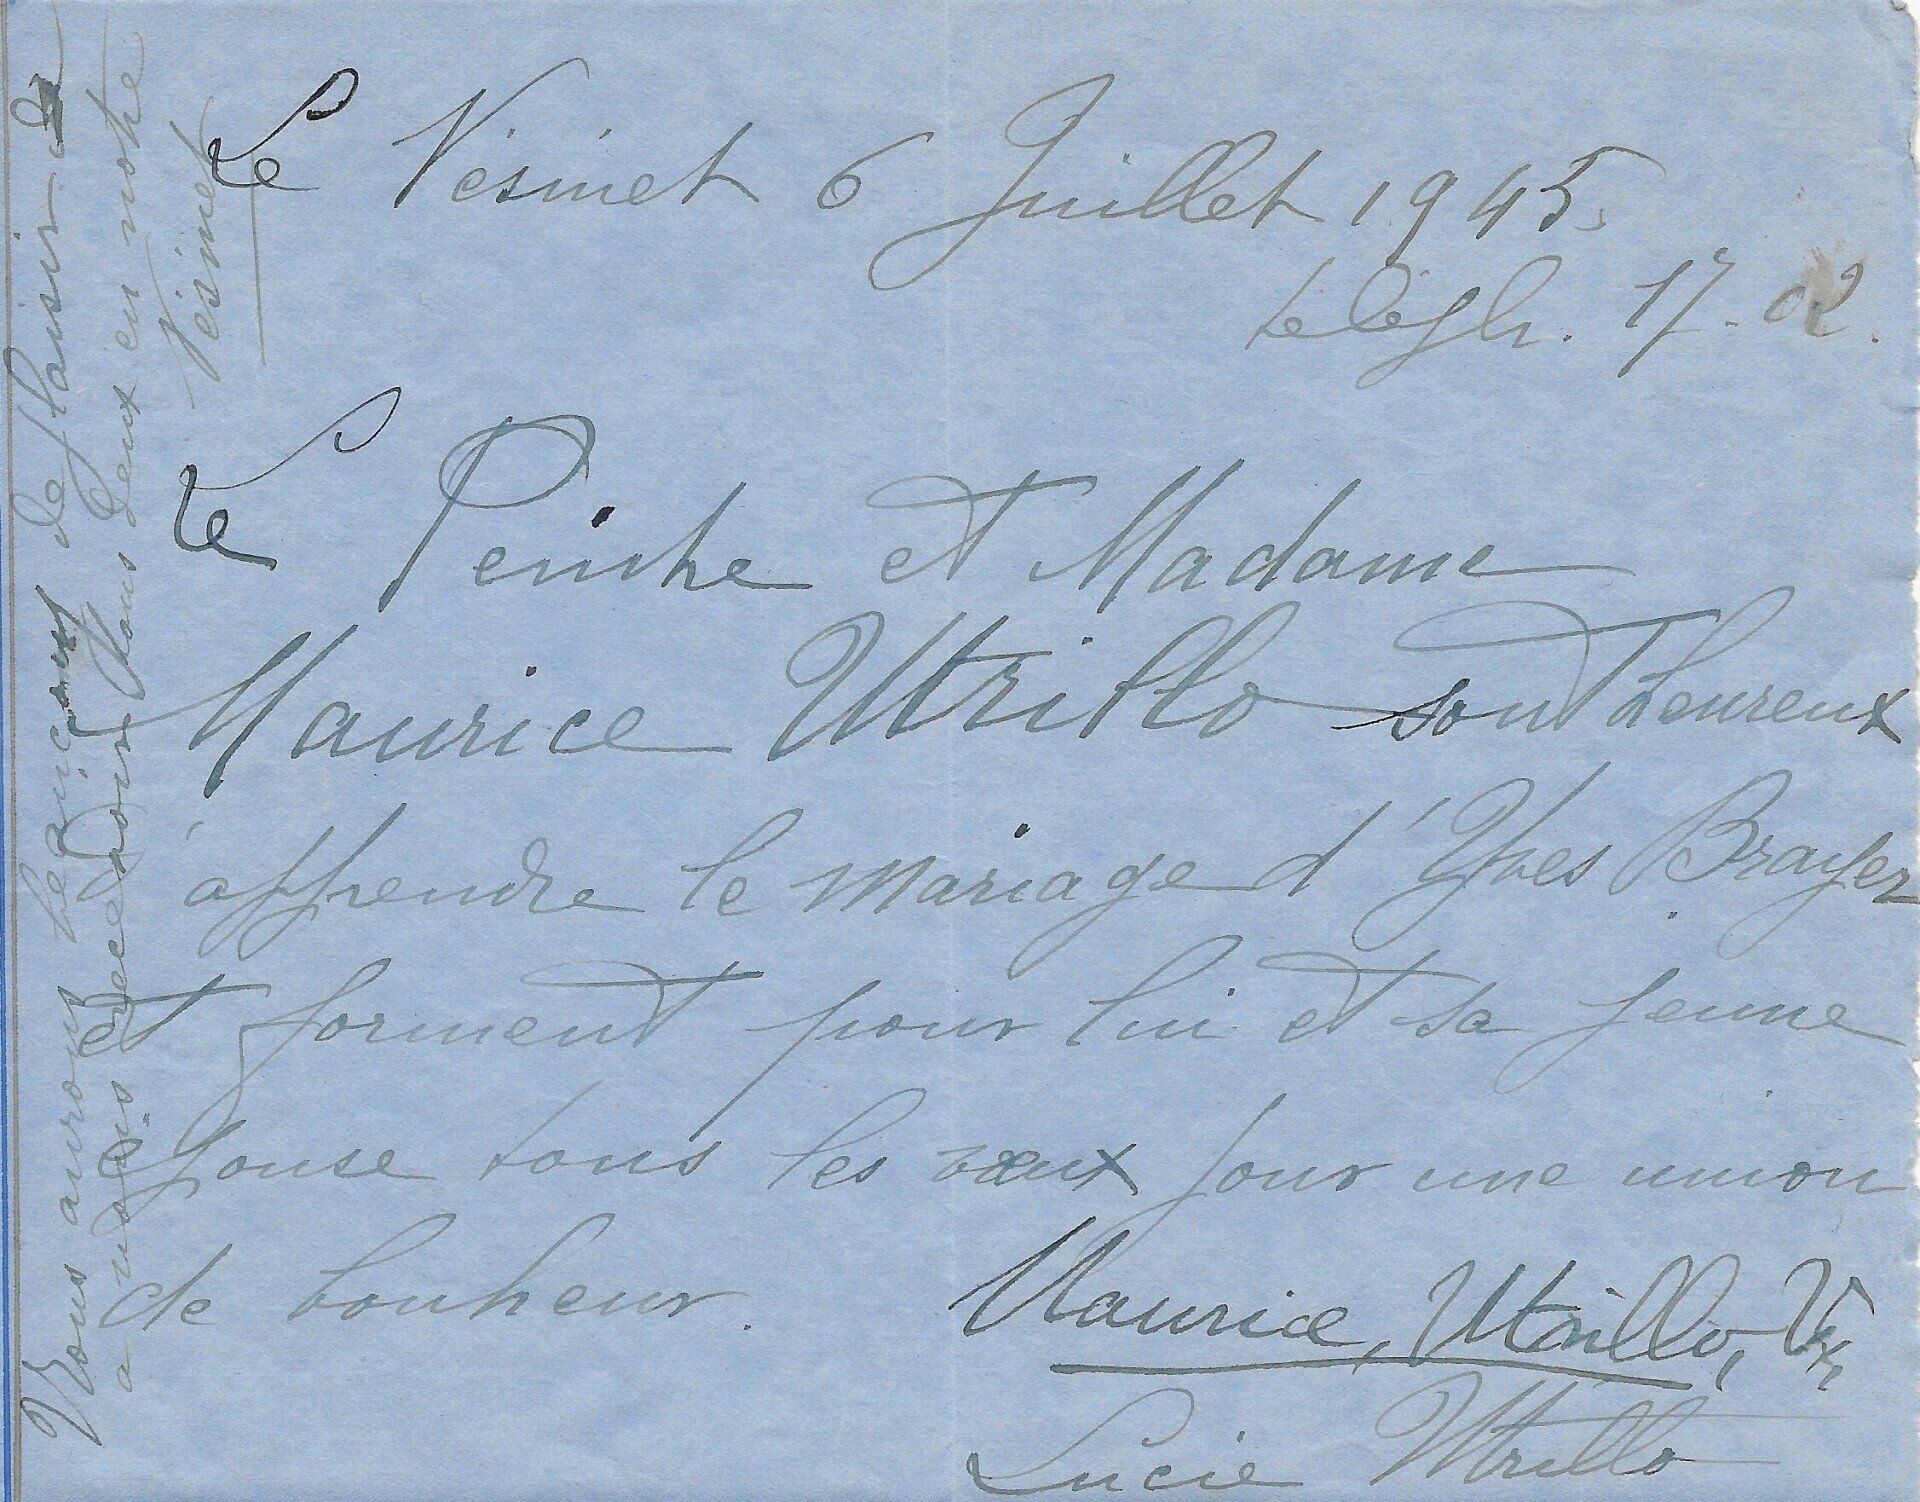 Le Vésinet 6 Juillet 1945
teléph. 17-02.
Le Peintre et Madame
Maurice Utrillo sont heureux
apprendre le mariage d'Yves Brayer
et forment pour lui et sa jeune
épouse tous les vœux pour une union
de bonheur.
Maurice, Utrillo, V,
Lucie Utrillo
Nous aurons de plaisir à
à vous recevoir tous deux en notre
Vésinet